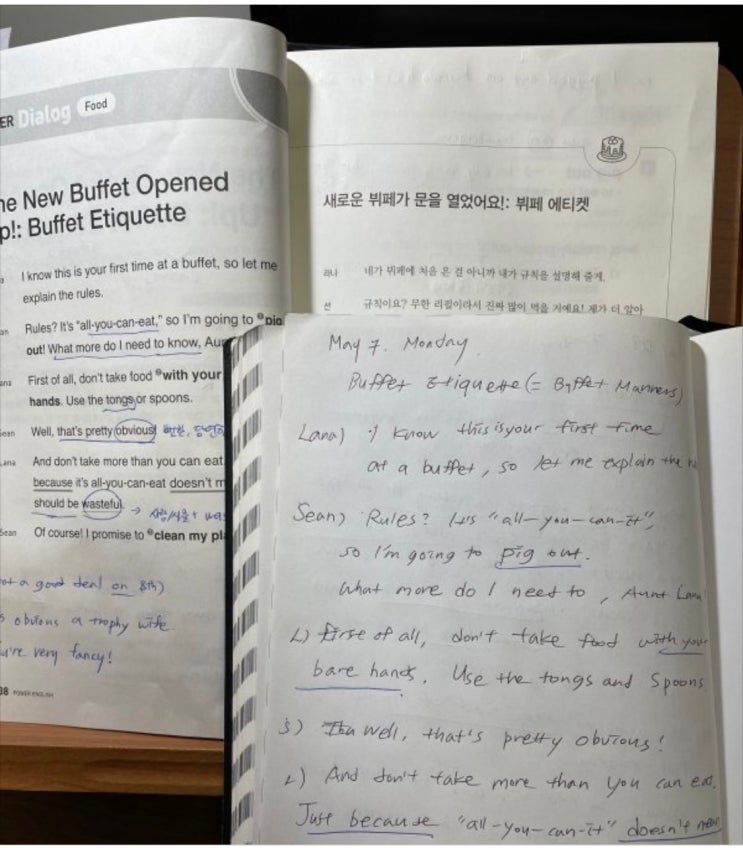 ER Dialog Food
he New Buffet Opened
p!: Buffet Etiquette
I know this is your first time at a buffet, so let me
explain the rules.
Rules? It's "all-you-can-eat," so I'm going to pig
out! What more do I need to know, Au
ana First of all, don't take food with your
hands. Use the tongs or spoons.
Sean Well, that's pretty obvious!
Lana And don't take more than you can eat
because it's all-you-can-eat doesn't m
should be wasteful.
Sean Of course! I promise to clean my pl
a good deal on
obvious a trophy wife
u're very fancy!
08 POWER ENGLISH
새로운 뷔페가 문을 열었어요!: 뷔페 에티켓
라나 네가 뷔페에 처음 온 걸 아니까 내가 규칙을 설명해 줄게.
션 규칙이요? 무한 리필이라서 진짜 많이 먹을 거예요! 제가 더 알아
May 7. Monday.
Buffet Etiquette (= Buffet Manners)
Lana) I know this is your first time
at a buffet, so let me explain the
Sean) Rules? It's "all-you-can-it",
so I'm going to pig out.
What more do I need to, Aunt Lana
L) First of all, don't take food with your
bare hands. Use the tongs and spoons
S) well, that's pretty obvious!
L) And don't take more than you can eat.
Just because "all-you-can-it" doesn't mean